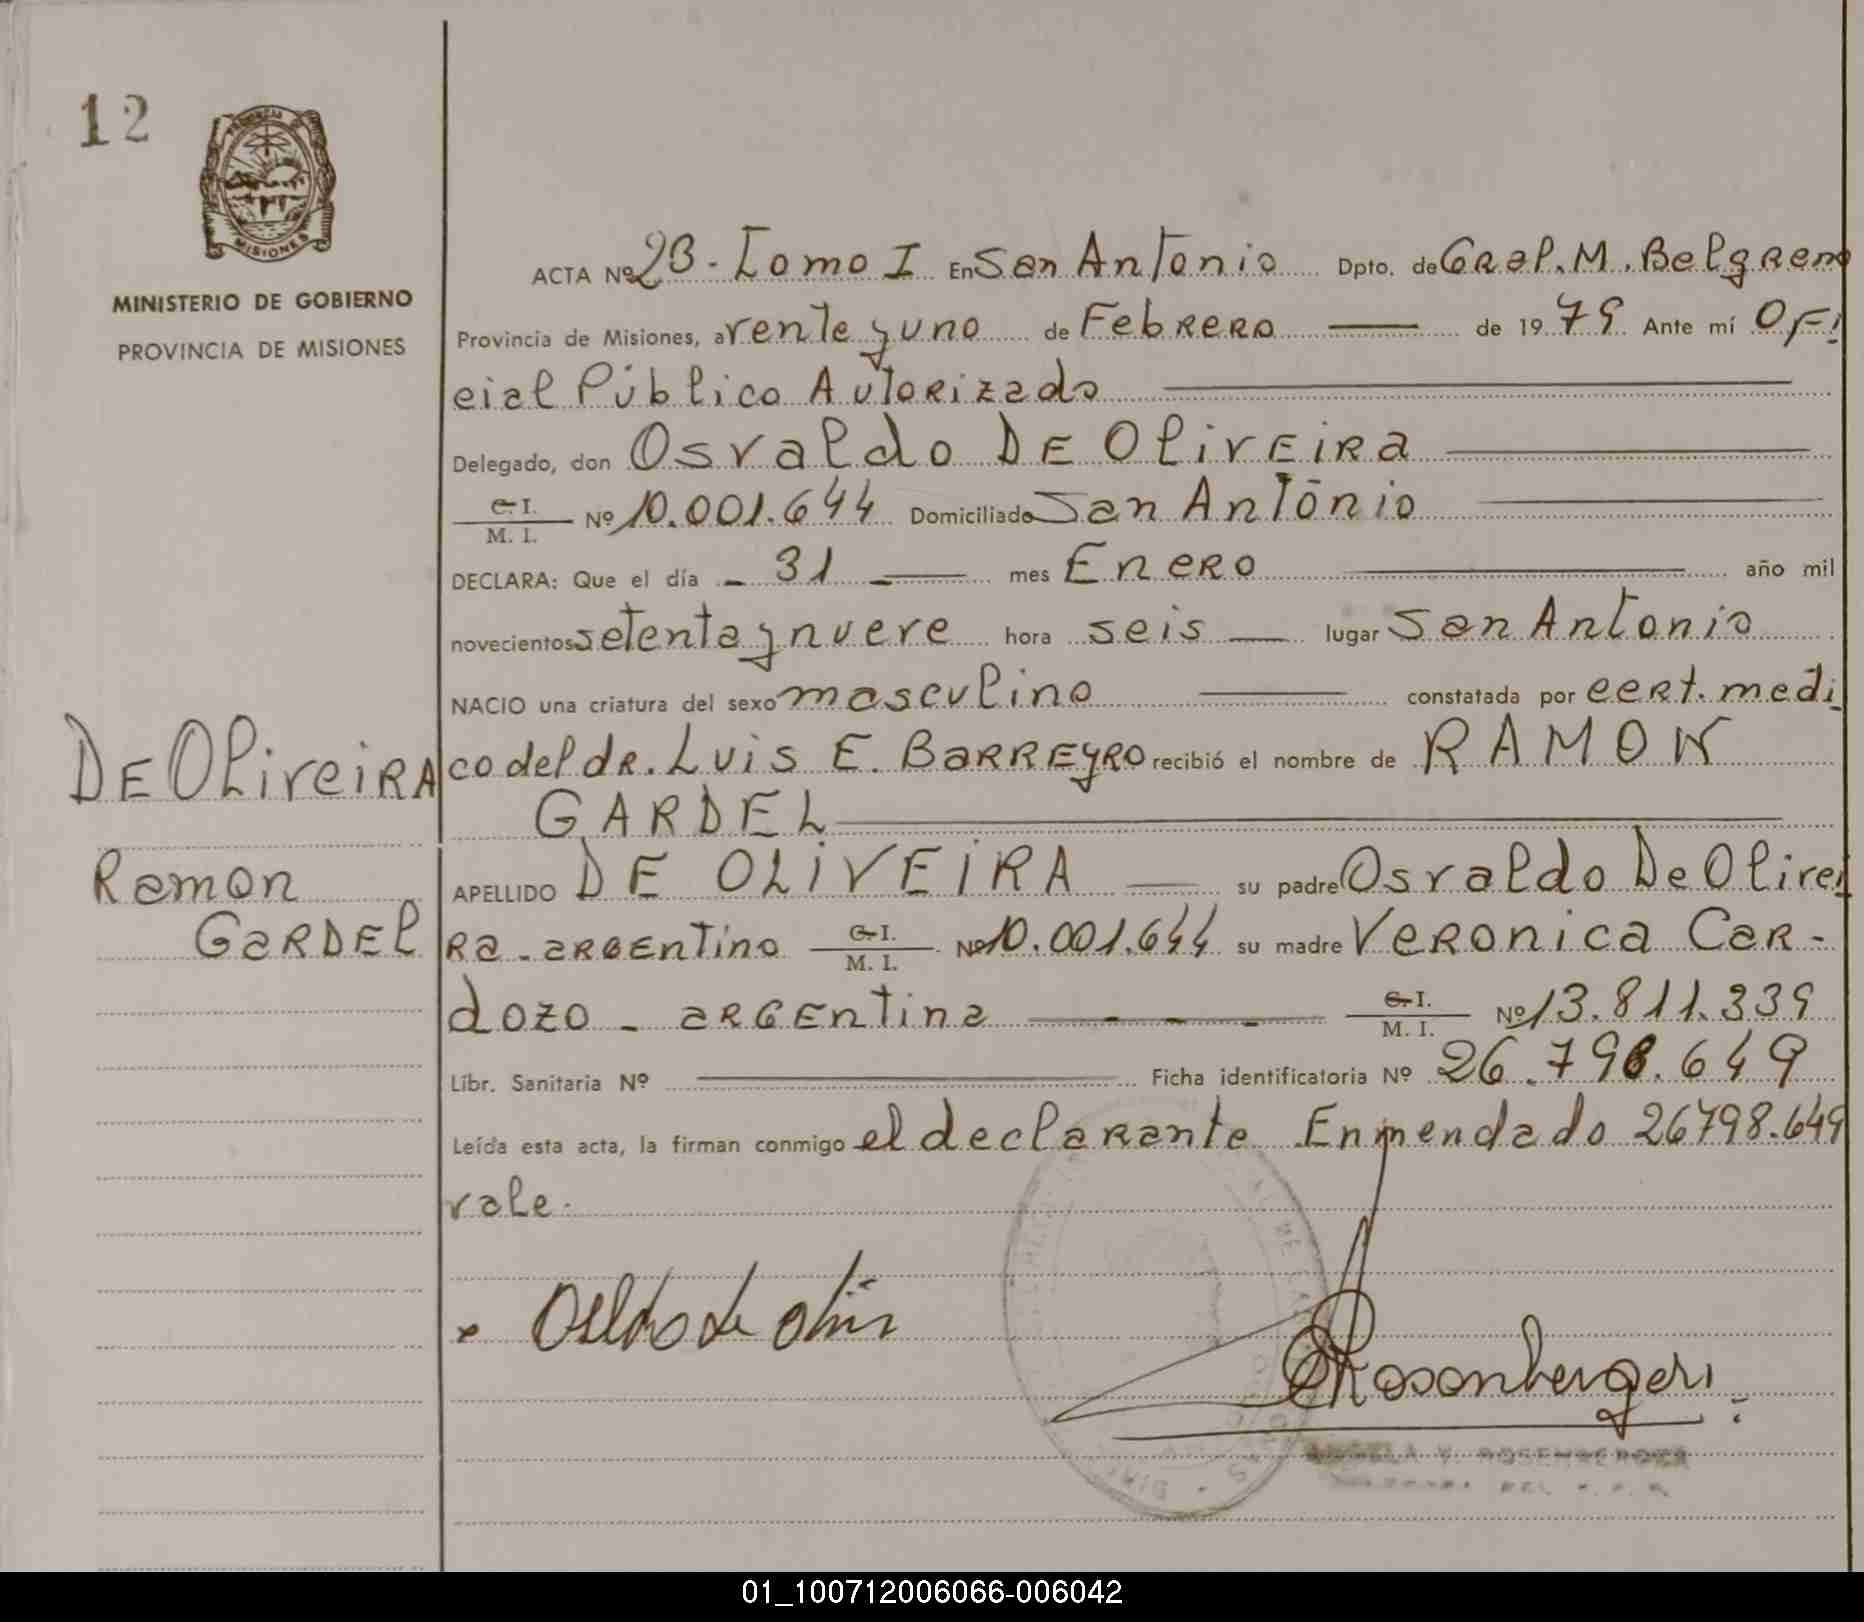 12
PROVINCIA DE
MISIONES
MINISTERIO DE GOBIERNO
PROVINCIA DE MISIONES
ACTA Nº 23. Tomo I En San Antonio Dpto. de Gral. M. Belgrano
Provincia de Misiones, a vente y uno de Febrero de 1979 Ante mí Ofi
cial Público Autorizado
Delegado, don Osvaldo DE Oliveira
C. I. / M. I. Nº 10.001.644 Domiciliado San Antonio
DECLARA: Que el día - 31 - mes Enero año mil
novecientos setenta y nueve hora seis lugar San Antonio
NACIO una criatura del sexo masculino constatada por cert. medi
co del dr. Luis E. Barreyro recibió el nombre de RAMON
GARDEL
DE Oliveira
Ramon
Gardel
APELLIDO DE OLIVEIRA su padre Osvaldo De Olivei
ra - argentino C. I. / M. I. Nº 10.001.644 su madre Veronica Car-
dozo - argentina C. I. / M. I. Nº 13.811.339
Libr. Sanitaria Nº Ficha identificatoria Nº 26.798.649
Leída esta acta, la firman conmigo el declarante Enmendado 26798.649
vale.
Rosenberger
ANGELA Y. ROSEMBERGER
01_100712006066-006042